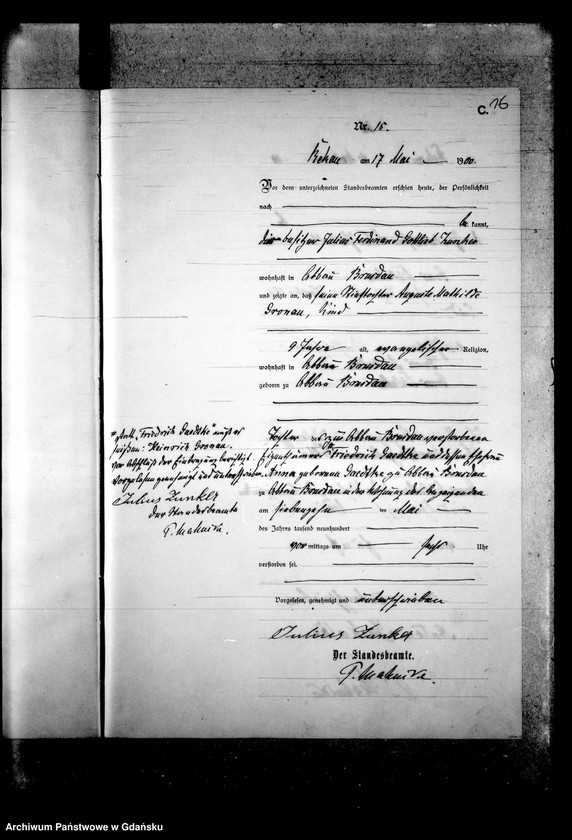 C. 16
Nr. 15.
am 17 Mai 1900.
Vor dem unterzeichneten Standesbeamten erschien heute, der Persönlichkeit
nach
be kannt,
der Besitzer Julius Ferdinand Gottlieb Zunker
wohnhaft in Abbau Bonsdau
und zeigte an, daß seine Stieftochter Auguste Mathilde
Gronau, Kind
9 Jahre alt, evangelischer Religion,
wohnhaft in Abbau
geboren zu Abbau
Tochter des zu Abbau verstorbenen
Eigentümers Friedrich Gaedtke und dessen Ehefrau
Anna geborenen Gaedtke zu Abbau
zu Abbau in der Wohnung des Anzeigenden
am siebenzehnten Mai
des Jahres tausend neunhundert
vor mittags um sechs Uhr
verstorben sei.
Vorgelesen, genehmigt und unterschrieben
Julius Zunker
Der Standesbeamte.
"Friedrich Gaedtke" muß es
heißen: Heinrich Gronau.
Vor Abschluß der Eintragung berichtigt.
Vorgelesen genehmigt und unterschrieben
Julius Zunker
Der Standesbeamte
Archiwum Państwowe w Gdańsku